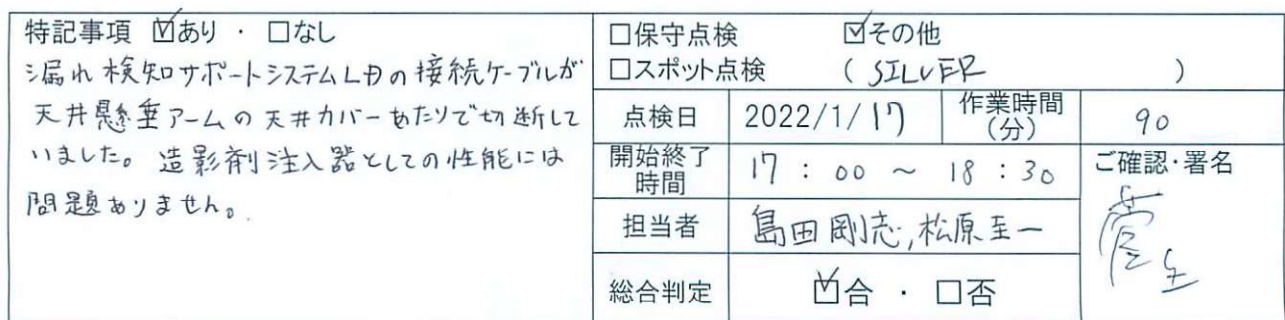 特記事項 ☑あり ・ □なし
漏れ検知サポートシステムLDの接続ケーブルが
天井懸垂アームの天井カバーあたりで切断して
いました。造影剤注入器としての性能には
問題ありません。
□保守点検 ☑その他
□スポット点検 ( SILVER )
点検日 2022/1/17 作業時間(分) 90
開始終了時間 17 : 00 ~ 18 : 30
担当者 島田剛志,松原至一
総合判定 ☑合 ・ □否
ご確認・署名